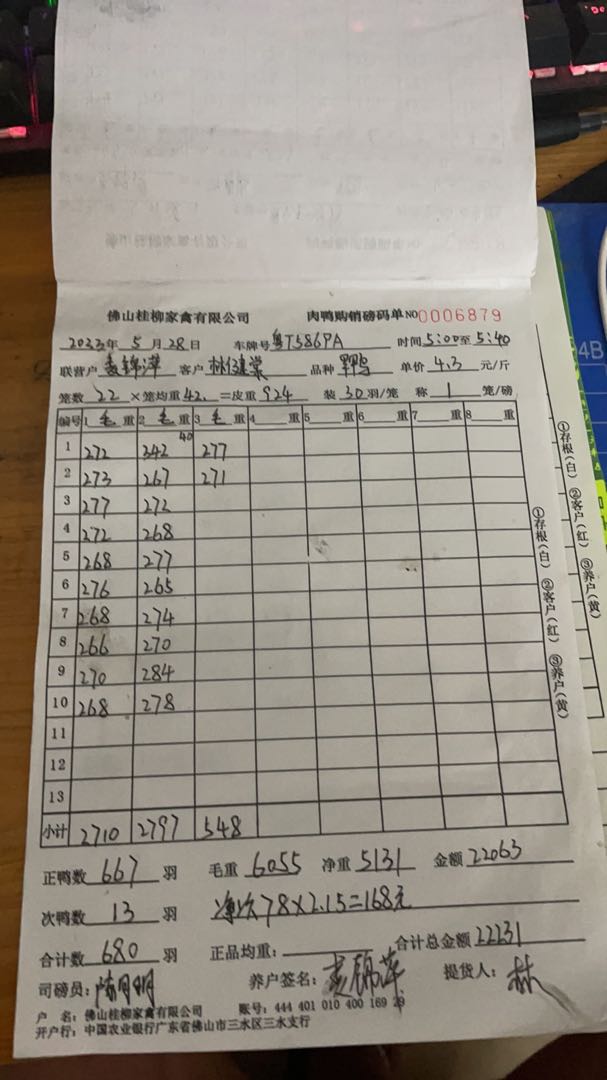 佛山桂柳家禽有限公司 肉鸭购销磅码单 NO 0006879
2023年 5月28日 车牌号 粤T386PA 时间 5:00至5:40
联营户 麦锦萍 客户 林健棠 品种 单价 4.3 元/斤
笼数 22 ×笼均重 42. =皮重 924 装 30 羽/笼 称 1 笼/磅
编号 1 毛 重 2 毛 重 3 毛 重 4 重 5 重 6 重 7 重 8 重
40
1 272 342 277
2 273 267 271
3 277 272
4 272 268
5 268 277
6 276 265
7 268 274
8 266 270
9 270 284
10 268 278
11
12
13
小计 2710 2797 548
正鸭数 667 羽 毛重 6055 净重 5131 金额 22063
次鸭数 13 羽 净次78×2.15=168元
合计数 680 羽 正品均重: 合计总金额 22231
司磅员: 养户签名: 麦锦萍 提货人: 林
户 名: 佛山桂柳家禽有限公司 账号: 444 401 010 400 169 29
开户行: 中国农业银行广东省佛山市三水区三水支行
①存根(白) ②客户(红) ③养户(黄)
①存根(白) ②客户(红) ③养户(黄)
94B